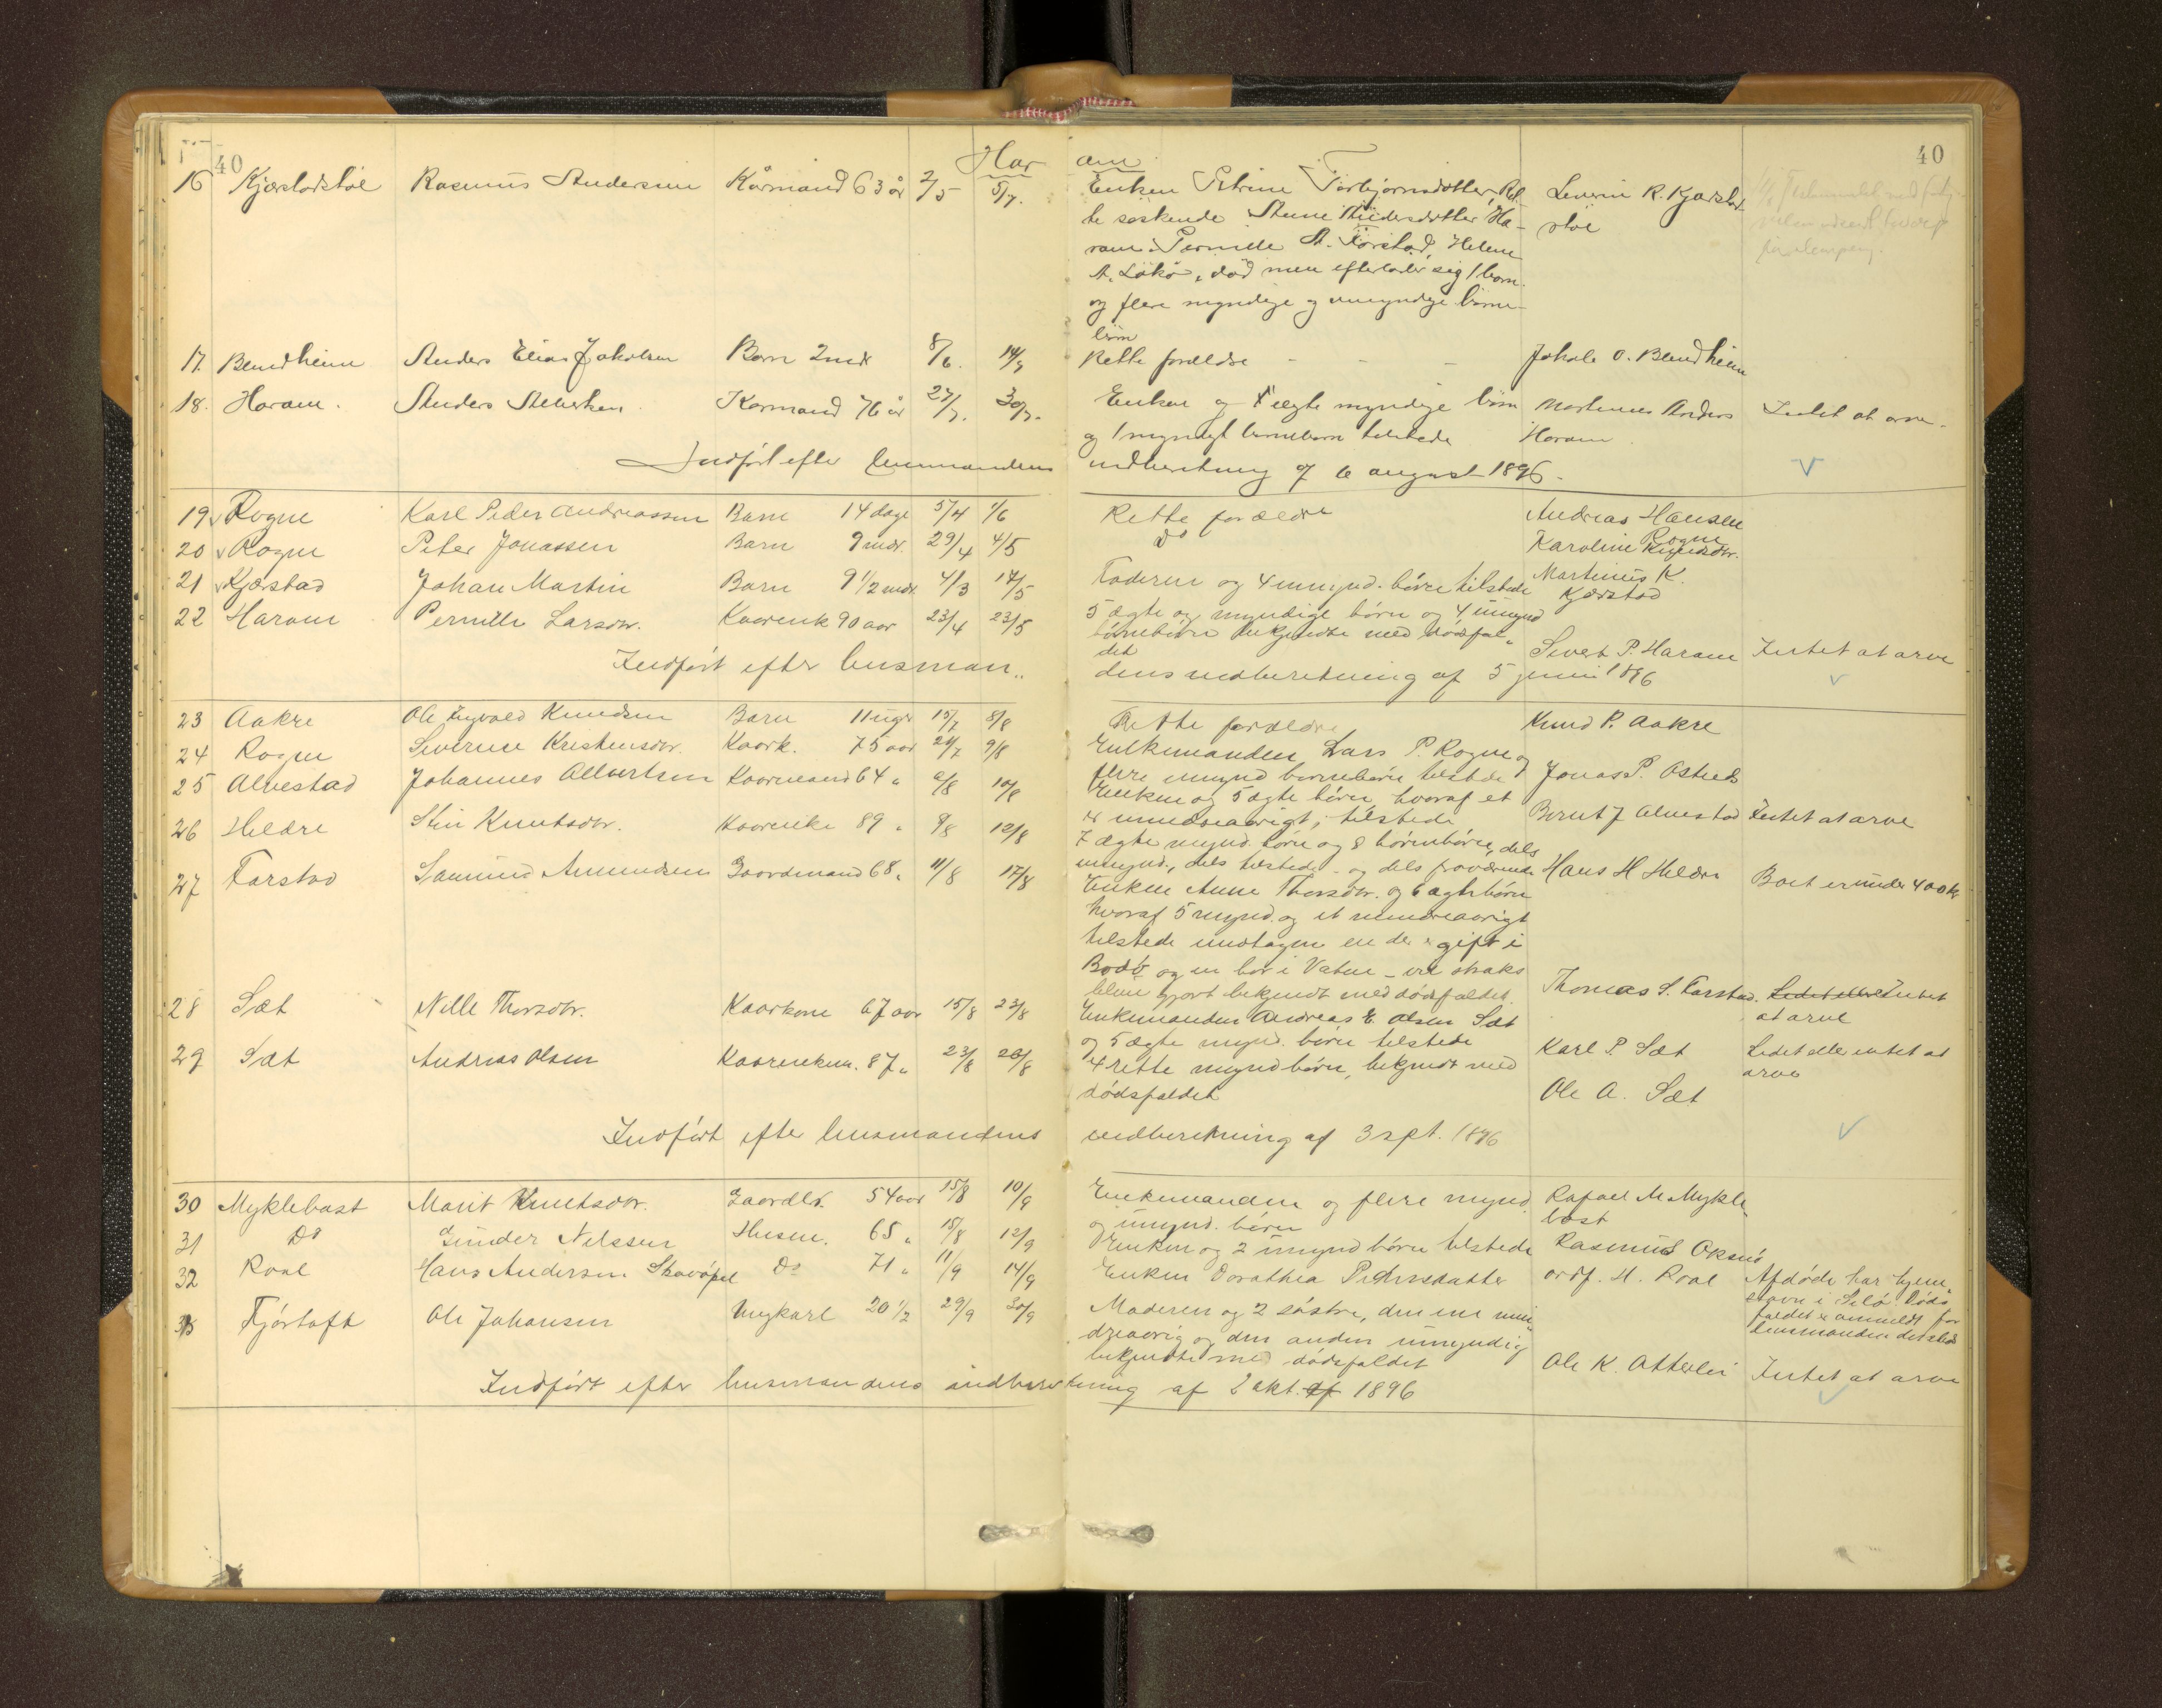 40
40
Har am
16 Kjærstadstøl Rasmus Andersen Kårmand 63 år 2/5 5/7. Enken Petrine Torbjørnsdotter, Ret
te søskende Anne Andersdotter Ha-
ram. Pernille A. Farstad, Helene
A. Løkø, død men efterlader sig 1 barn
og flere myndige og umyndige børne-
børn
Severin R. Kjærstad
støl
17. Blindheim Anders Elias Jakobsen Barn 2 mdr 8/6. 14/7 Rette forældre - - - Jakob O. Blindheim
18. Haram. Anders Karmand 76 år 27/7. 30/7. Enken og ægte myndige børn Anders Intet at arve.
og 1 myndigt barnebarn tilstede Haram
Indført efter lensmandens indberetning af 6 august 1896.
19 Rogne Karl Peder Andreassen Barn 14 dage 5/4 1/6 Rette forældre Andreas Hansen
Rogne
20 Rogne Peter Jonassen Barn 9 mdr. 29/4 4/5 Do Karoline Knudsdtr.
21 Kjærstad Johan Martin Barn 9 1/2 mdr. 4/3 17/5 Faderen og 4 umynd. børn tilstede Martinus K.
Kjærstad
22 Haram Pernille Larsdtr. Kaarenk 90 aar 23/4 23/5 5 ægte og myndige børn og 4 umynd
børnebørn bekjendte med dødsfal-
det Sivert P. Haram Intet at arve
Indført efter lensman- dens indberetning af 5 juni 1896
23 Aakre Ole Ingvald Knudsen Barn 11 uger 15/7 8/8 Rette forældre Knud P. Aakre
24 Rogne Severine Kristensdtr. Kaark. 75 aar 29/7 9/8 Enkemanden Lars P. Rogne og
flere umynd børnebørn tilstede Jonas P. Østnes
25 Alvestad Johannes Albertsen Kaarmand 64 " 2/8 10/8 Enken og 5 ægte børn, hvoraf et
er mindreaarigt, tilstede Bernt J Alvestad Intet at arve
26 Hildre Stin Knutsdtr. Kaarenke 89 " 9/8 12/8 7 ægte mynd. børn og 8 børnebørn, dels
umynd., dels tilstede og dels fraværende Hans H Hildre Boet er under 400 kr
27 Farstad Samund Amundsen Gaardmand 68 " 11/8 17/8 Enken Anne Thorsdtr. og 6 ægte børn
hvoraf 5 mynd. og et mindreaarigt
tilstede undtagen en der er gift i
Bodø og en bor i Vatne - vil straks
blive gjort bekjendt med dødsfaldet. Thomas S. Farstad. Lidet eller Intet
at arve
28 Sæt Nille Thorsdtr. Kaarkone 67 aar 15/8 23/8 Enkemanden Andreas E. Olsen Sæt
og 5 ægte mynd. børn tilstede Karl P. Sæt Lidet eller intet at
arve
29 Sæt Andreas Olsen Kaarenkem. 87 " 23/8 28/8 4 rette mynd børn, bekjendt med
dødsfaldet Ole A. Sæt
Indført efter lensmandens indberetning af 3 sept. 1896
30 Myklebust Marit Knutsdtr. 54 aar 15/8 10/9 Enkemanden og flere mynd.
og umynd. børn Rafael M Mykle-
bost
31 Do Gunder Nilssen Husm. 65 " 15/8 12/9 Enken og 2 umynd børn tilstede Rasmus Oksnes
32 Roal Hans Andersen Do 71 " 11/9 14/9 Enken Dorathea Pedersdatter ordf. H. Roal Afdøde har hjem
stavn i Dødsfaldet er anmeldt for
lensmanden dersteds
33 Fjørtoft Ole Johansen Ungkarl 20 1/2 29/9 30/9 Moderen og 2 søstre, den ene min-
dreaarig og den anden umyndig
bekjendte med dødsfaldet Ole K. Otterlei Intet at arve
Indført efter lensmandens indberetning af 2 okt. af 1896